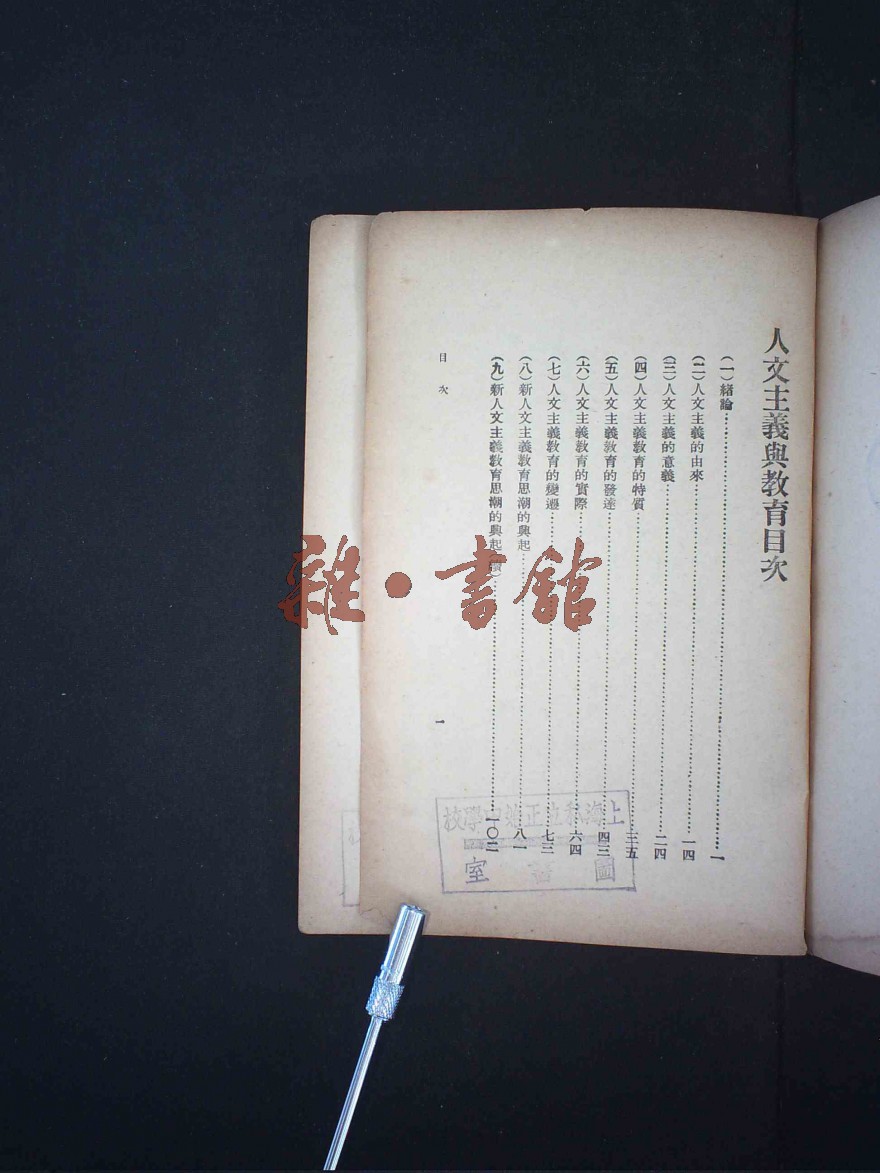 人文主義與教育目次
(一)緒論…………一
(二)人文主義的由來…………一四
(三)人文主義的意義…………二四
(四)人文主義教育的特質…………三五
(五)人文主義教育的發達…………四三
(六)人文主義教育的實際…………六四
(七)人文主義教育的變遷…………七三
(八)新人文主義教育思潮的興起…………八一
(九)新人文主義教育思潮的興起(續)…………一〇二
目次
一
雜·書館
上海私立正始中學校
圖書室